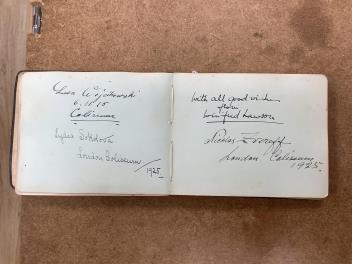 Leon Wójcikowski
Coliseum
Lydia Sokolova
London Coliseum
1925.
With all good wishes
from
Winifred Lawson
Nicolas Zvereff
London Coliseum
1925.